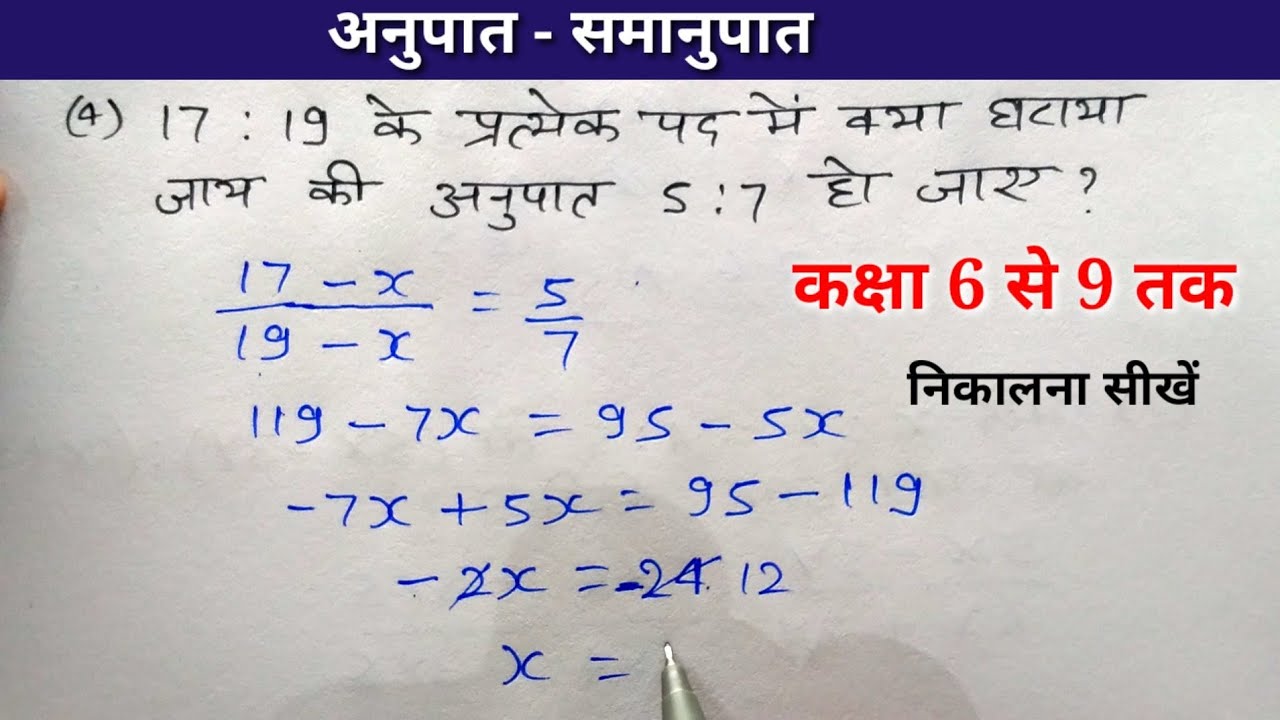 अनुपात - समानुपात
(4) 17 : 19 के प्रत्येक पद में क्या घटाया
जाय की अनुपात 5 : 7 हो जाए ?
कक्षा 6 से 9 तक
निकालना सीखें
17 - x / 19 - x = 5 / 7
119 - 7x = 95 - 5x
-7x + 5x = 95 - 119
- 2x = -24 12
x =